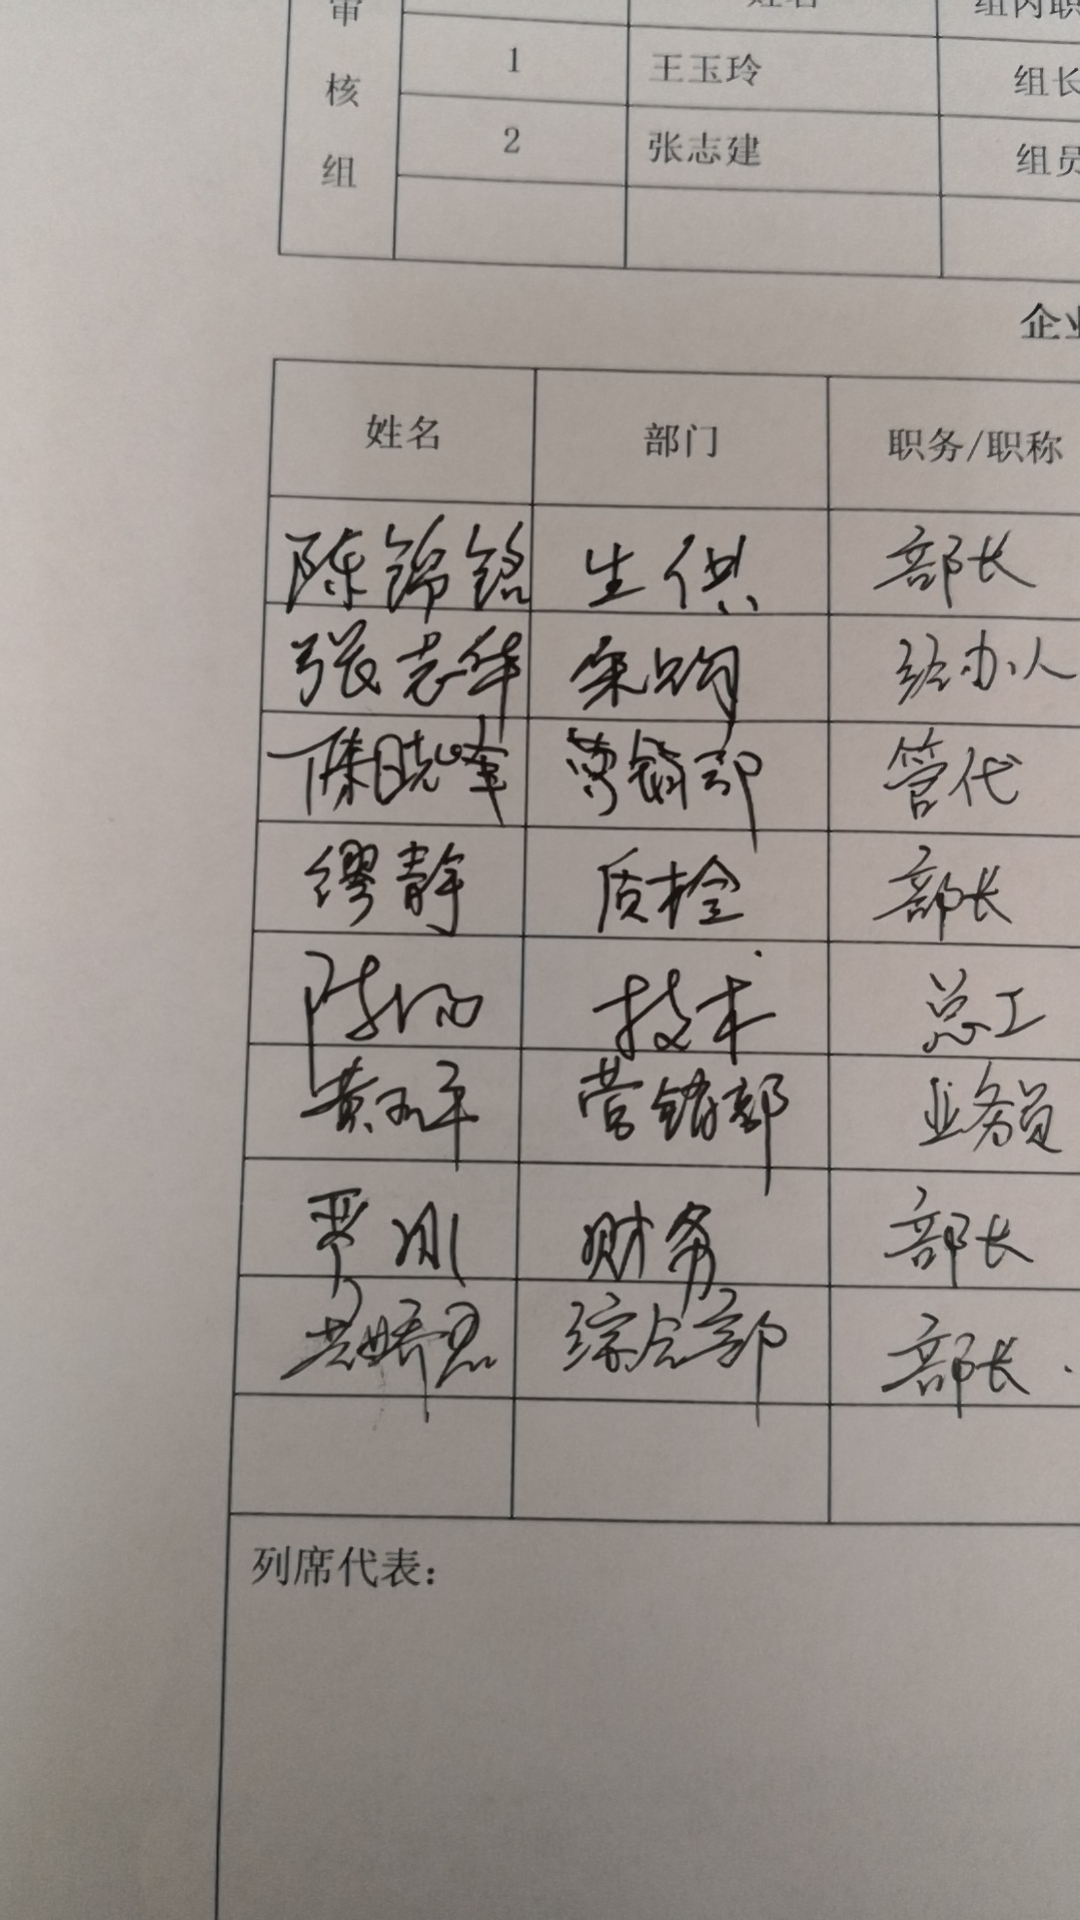 审核组
姓名 组内职
1 王玉玲 组长
2 张志建 组员
企业
姓名 部门 职务/职称
陈锦铭 生供 部长
张志华 采购 经办人
陈晓峰 营销部 管代
缪静 质检 部长
陈 技术 总工
黄 平 营销部 业务员
严刚 财务 部长
综合部 部长
列席代表：